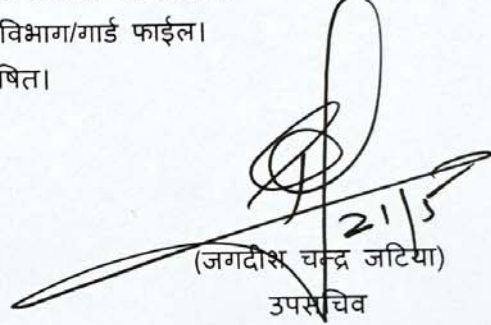 विभाग/गार्ड फाईल।
षित।
21/5
(जगदीश चन्द्र जटिया)
उपसचिव